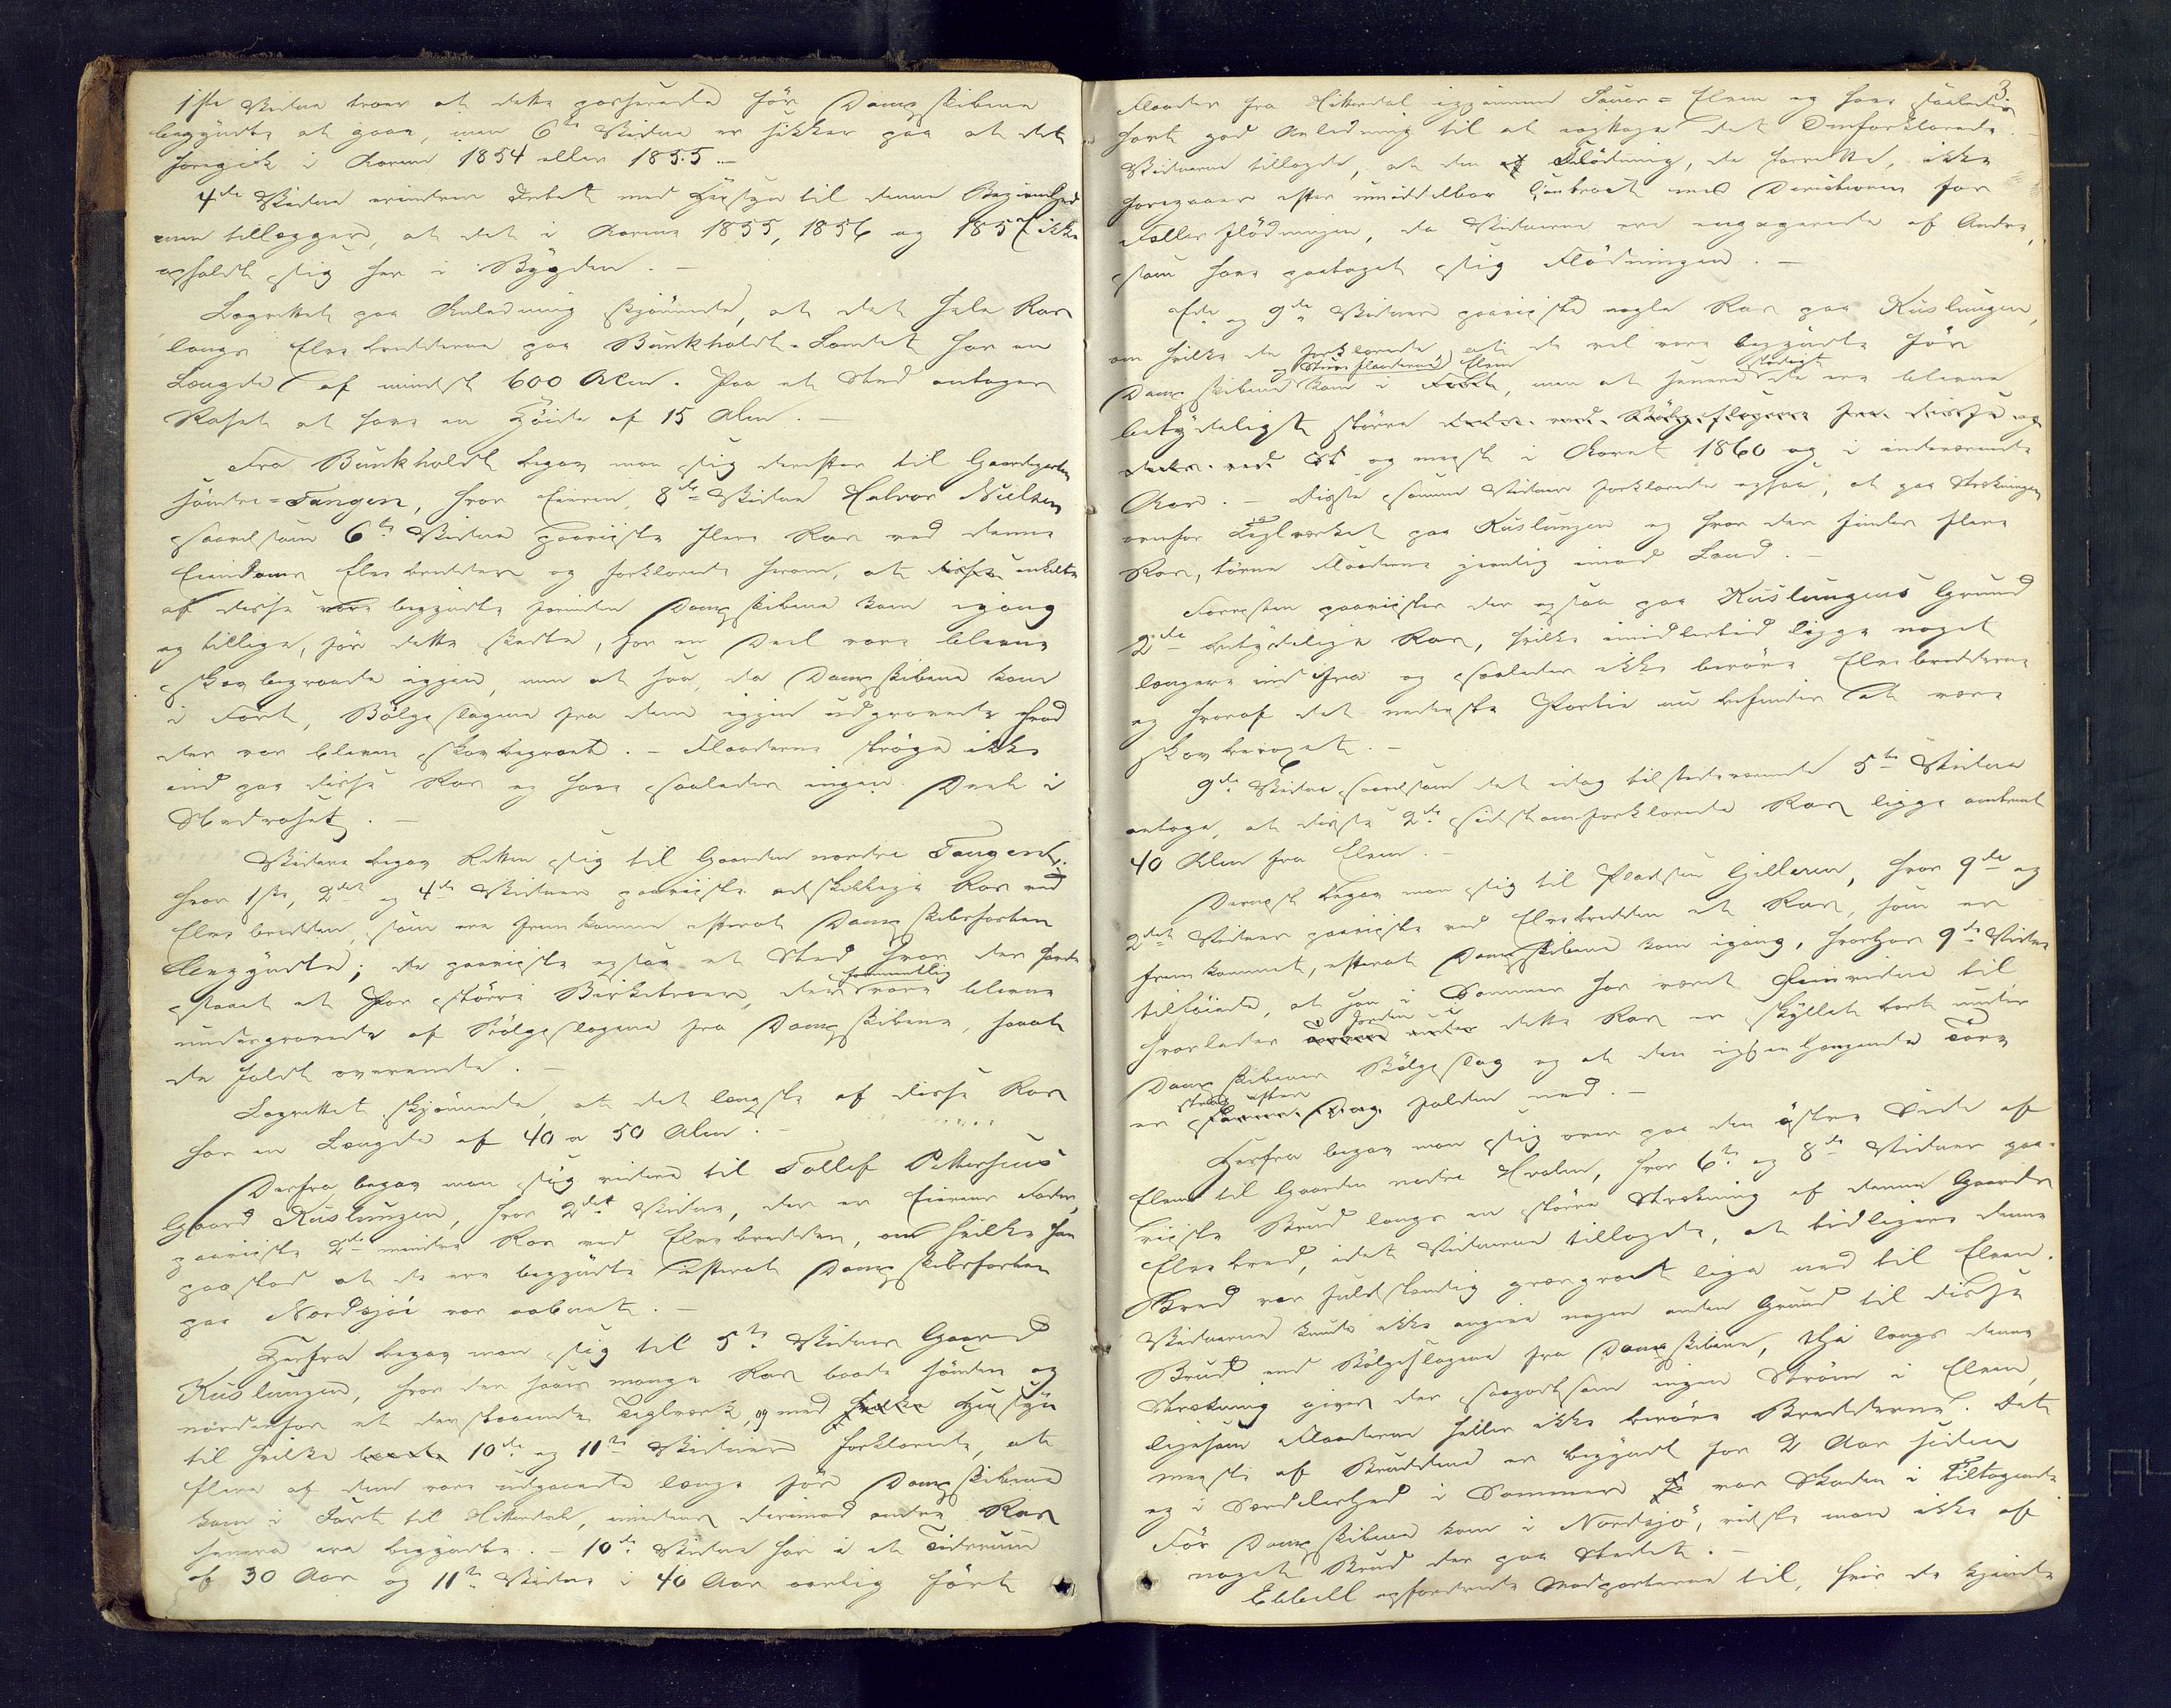 1ste Vidne troer at dette passerede før Dampskibene
begyndte at gaae, men 6te Vidne er sikker paa at det
foregik i Aarene 1854 eller 1855.–
4de Vidne erindrer Intet med Hensyn til denne Begivenhed
men tillægger, at det i Aarene 1855, 1856 og 1857 ikke
opholdt sig her i Bygden.–
Lagrettet paa Anledning skjønnede, at det hele Ras
langs Elvebredderne paa Bunkholdt-Landet har en
Længde af mindst 600 Alen. Paa et Sted antages
Raset at have en Høide af 15 Alen.–
Fra Bunkholdt begav man sig derefter til Gaardparten
søndre-Tangen, hvor Eieren, 8de Vidne Halvor Nielsen
saavelsom 6te Vidne paaviste flere Ras ved denne
Eiendoms Elvebredder og forklarede herom, at enkelte
af disse vare begyndte forinden Dampskibene kom igang
og tillige, før dette skedte, for en Deel vare blevne
skovbegroede igjen, men at saa, da Dampskibene kom
i Fart, Bølgeslagene fra dem igjen udgravede hvad
der var bleven skovbegroet.– Flaaderne strøge ikke
ind paa disse Ras og have saaledes ingen Deel i
Nedraset.–
Videre begav Retten sig til Gaarden nordre Tangen,
hvor 1ste, 2det og 4de Vidner paaviste adskillige Ras ved
Elvebredden, som ere fremkomne efterat Dampskibsfarten
begyndte; de paaviste ogsaa et Sted hvor der havde
staaet et Par større Birketræer, der formentlig vare blevne
undergravede af Bølgeslagene fra Dampskibene, saaat
de faldt overende.–
Lagrettet skjønnede, at det længste af disse Ras
har en Længde af 40 a 50 Alen.–
Derfra begav man sig videre til Tollef Pettersens
Gaard Kuslungen, hvor 2det Vidne, der er Eierens Fader,
paaviste 2de mindre Ras ved Elvebredden, om hvilke han
paastod at de ere begyndte efterat Dampskibsfarten
paa Nordsjø var aabnet.–
Herfra begav man sig til 5te Vidnes Gaard
Kuslungen, hvor der saaes mange Ras baade sønden og
nordenfor et derstaaende Teglværk, og med Hensyn
til hvilke 10de og 11te Vidner forklarede, at
flere af dem vare udgaaede længe før Dampskibene
kom i Fart til Hitterdal, imedens derimod andre Ras
senere ere begyndte.– 10de Vidne har i et Tidsrum
af 30 Aar og 11te Vidne i 40 Aar aarlig ført
3
Flaader fra Hitterdal igjennem Sauer-Elven og have saaledes
havt god Anledning til at iagttage det Omforklarede.–
Vidnerne tillagde, at den Flødning, de forrette, ikke
foregaaer efter umiddelbar Contract med Directionen for
Fællesflødningen, da Vidnerne ere engagerede af Andre,
som have paataget sig Flødningen.–
og 9de Vidner paaviste nogle Ras paa Kuslungen,
om hvilke de forklarede at de vel vare begyndte før
Dampskibene kom i Elven, men at senere de ere blevne
betydeligt større
og meest i Aaret 1860 og i indeværende
Aar.– Disse samme Vidner forklarede ogsaa, at paa Strækningen
ovenfor Teglværket paa Kuslungen og hvor der findes flere
Ras, tørne Flaaderne jevnlig imod Land.–
Forresten paavistes der ogsaa paa Kuslungens Grund
2de betydelige Ras, hvilke imidlertid ligge noget
længere ind fra og saaledes ikke berøre Elvebredderne
og hvoraf det nederste Partie nu befindes at være
skovbevoxet.–
9de Vidne saavelsom det idag tilstedeværende 5te Vidne
antage, at disse 2de sidstomforklarede Ras ligge omtrent
40 Alen fra Elven.–
Dernæst begav man sig til Pladsen Gilleren, hvor 9de og
2det Vidner paaviste ved Elvebredden et Ras, som er
fremkommet, efterat Dampskibene kom igang, hvorhos 9de Vidne
tilføiede, at han i Sommer har været Øienvidne til
hvorledes Jorden i dette Ras er skyllet bort under
Dampskibenes Bølgeslag og at den igjenhængende Tørv
er strax efter falden ned.–
Herfra begav man sig over paa den østre Side af
Elven til Gaarden nedre Hvalen, hvor 6te og 8de Vidner paa-
viste Brud langs en større Strækning af denne Gaards
Elvebred, idet Vidnerne tillagde, at tidligere denne
Bred var fuldstændig græsgroet lige ned til Elven.
Vidnerne kunde ikke angive nogen anden Grund til disse
Brud end Bølgeslagene fra Dampskibene, thi langs denne
Strækning gives der saagodtsom ingen Strøm i Elven,
ligesom Flaaderne heller ikke berøre Bredderne. Det
meeste af Bruddene er begyndt for 2 Aar siden
og i Særdeleshed i Sommer var Skaden i Tiltagende
Før Dampskibene kom i Nordsjø, vidste man ikke af
noget Brud der paa Stedet.–
Ebbell opfordrede Modparterne til, hvis de kjendte